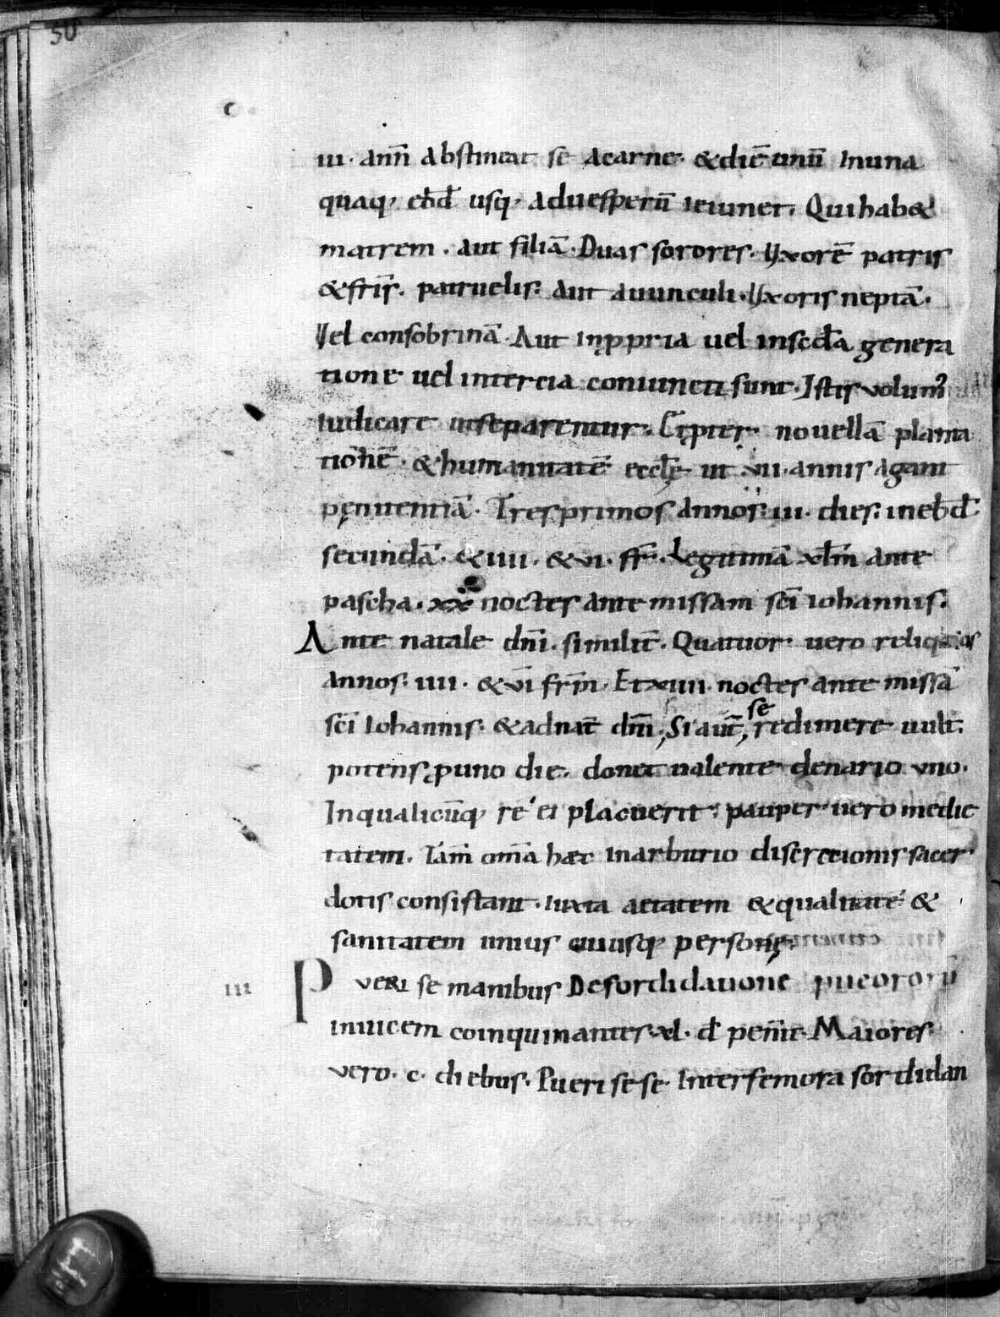 50
iii· ann̄ abstineat se acarne· &diē unū Inuna
quaq; ebđ usq; aduesperū ieiunet. Quihab&
matrem · aut filiā · Duas sorores· Uxorē patris
&fr̄is. patruelis. aut auunculi · Uxoris neptā·
Uel consobrinā · Aut inꝓpria uel inscđa genera
tione uel intercia coniuncti sunt · Istis volum̄
iudicare utseparentur. & ꝓpter nouellā planta
tionē · &humanitatē eccłę ut ·vii· annis agant
pęnitentiā · Tresprimos annos· iii· dies· inebđ·
secundā· &iiii · &vi· fr̄· Legitimā xl̄m ante
pascha · xx noctes ante missam sc̄i iohannis·
Ante natale dn̄i· similit̄· Quatuor uero reliquos
annos· iiii · &vi fr̄m· Etxiiii· noctes ante missā
sc̄i Iohannis· &adnat̄ dn̄i; Si aut̄, se redimere uult.
potens, ꝓuno die. donet ualente denario vno.
Inqualicūq; re ei placuerit· pauper uero medie
tatem. Iam om̄a hæc inarbitrio discretionis sacer
dotis consistant · iuxta aetatem &qualitatē &
sanitatem unius cuiusq; personę
iii Pveri se manibus Desordidatione pueororū
inuicem coinquinantes· xl· đ penit̄· Maiores
vero· c· diebus· Pueri sese Interfemora sordidan